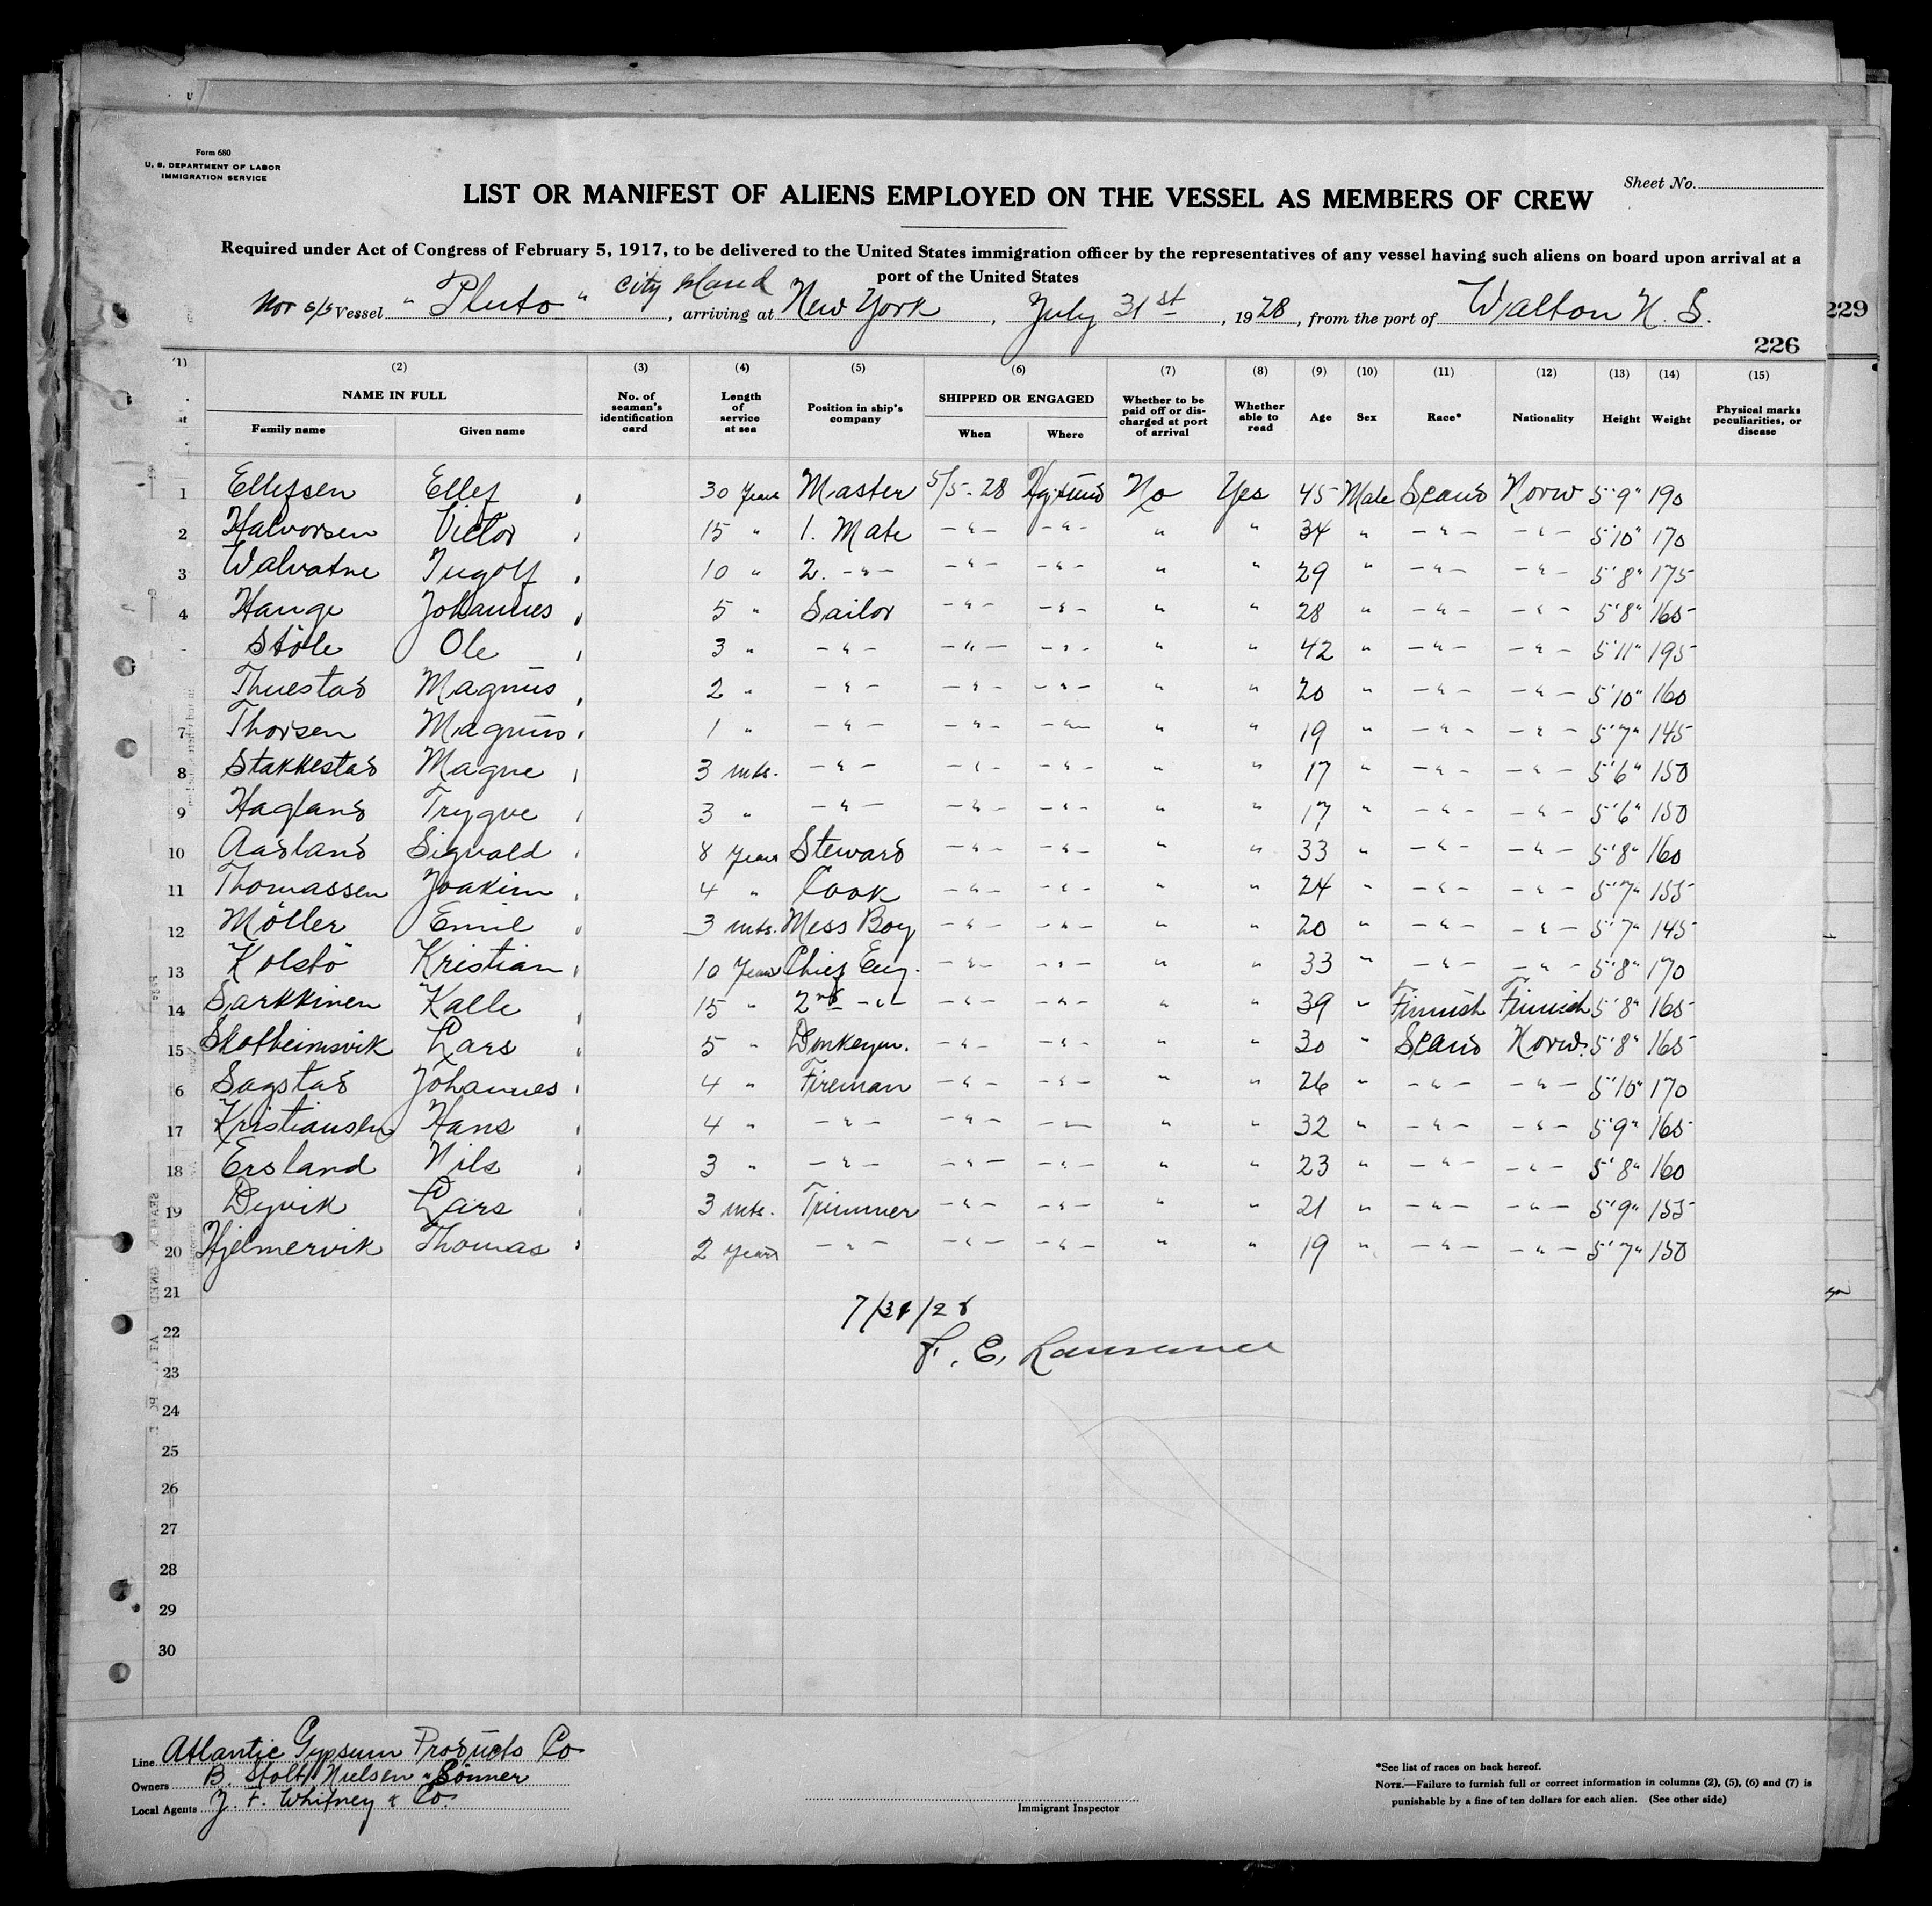 Form 680
U. S. DEPARTMENT OF LABOR
IMMIGRATION SERVICE
Sheet No.
LIST OR MANIFEST OF ALIENS EMPLOYED ON THE VESSEL AS MEMBERS OF CREW
Required under Act of Congress of February 5, 1917, to be delivered to the United States immigration officer by the representatives of any vessel having such aliens on board upon arrival at a
port of the United States
City Island
Nor s/s Vessel "Pluto", arriving at New York, July 31st, 1928, from the port of Walton N. S.
229
226
(1) (2) (3) (4) (5) (6) (7) (8) (9) (10) (11) (12) (13) (14) (15)
NAME IN FULL Family name Given name No. of seaman's identification card Length of service at sea Position in ship's company SHIPPED OR ENGAGED When Where Whether to be paid off or discharged at port of arrival Whether able to read Age Sex Race* Nationality Height Weight Physical marks peculiarities, or disease
1 Ellefsen Ellef 30 Years Master 5/5-28 No Yes 45 Male Scand Norw 5'9" 190
2 Halvorsen Victor 15 " 1. Mate -"- -"- " " 34 " -"- -"- 5'10" 170
3 Walvatne Ingolf 10 " 2. -"- -"- -"- " " 29 " -"- -"- 5'8" 175
4 Hauge Johannes 5 " Sailor -"- -"- " " 28 " -"- -"- 5'8" 165
Stöle Ole 3 " -"- -"- -"- " " 42 " -"- -"- 5'11" 195
Thuestad Magnus 2 " -"- -"- -"- " " 20 " -"- -"- 5'10" 160
7 Thorsen Magnus 1 " -"- -"- -"- " " 19 " -"- -"- 5'7" 145
8 Stakkestad Magne 3 mts. -"- -"- -"- " " 17 " -"- -"- 5'6" 150
9 Hagland Trygve 3 " -"- -"- -"- " " 17 " -"- -"- 5'6" 150
10 Aasland Sigvald 8 Years Steward -"- -"- " " 33 " -"- -"- 5'8" 160
11 Thomassen Joakim 4 " Cook -"- -"- " " 24 " -"- -"- 5'7" 155
12 Möller Emil 3 mts. Mess Boy -"- -"- " " 20 " -"- -"- 5'7" 145
13 Kolstö Kristian 10 Years Chief Eng. -"- -"- " " 33 " -"- -"- 5'8" 170
14 Sarkkinen Kalle 15 " 2nd -"- -"- -"- " " 39 " Finnish Finnish 5'8" 165
15 Skotheimsvik Lars 5 " Donkeym. -"- -"- " " 30 " Scand Norw. 5'8" 165
6 Sagstad Johannes 4 " Fireman -"- -"- " " 26 " -"- -"- 5'10" 170
17 Kristiansen Hans 4 " -"- -"- -"- " " 32 " -"- -"- 5'9" 165
18 Ersland Nils 3 " -"- -"- -"- " " 23 " -"- -"- 5'8" 160
19 Dyvik Lars 3 mts. Trimmer -"- -"- " " 21 " -"- -"- 5'9" 155
20 Hjelmervik Thomas 2 Years -"- -"- -"- " " 19 " -"- -"- 5'7" 150
21
7/31/28
22
F. E.
23
24
25
26
27
28
29
30
Line Atlantic Gypsum Products Co
Owners B. Stolt Nielsen & Sönner
Local Agents J. F. Whitney & Co.
Immigrant Inspector
*See list of races on back hereof.
NOTE.—Failure to furnish full or correct information in columns (2), (5), (6) and (7) is
punishable by a fine of ten dollars for each alien. (See other side)